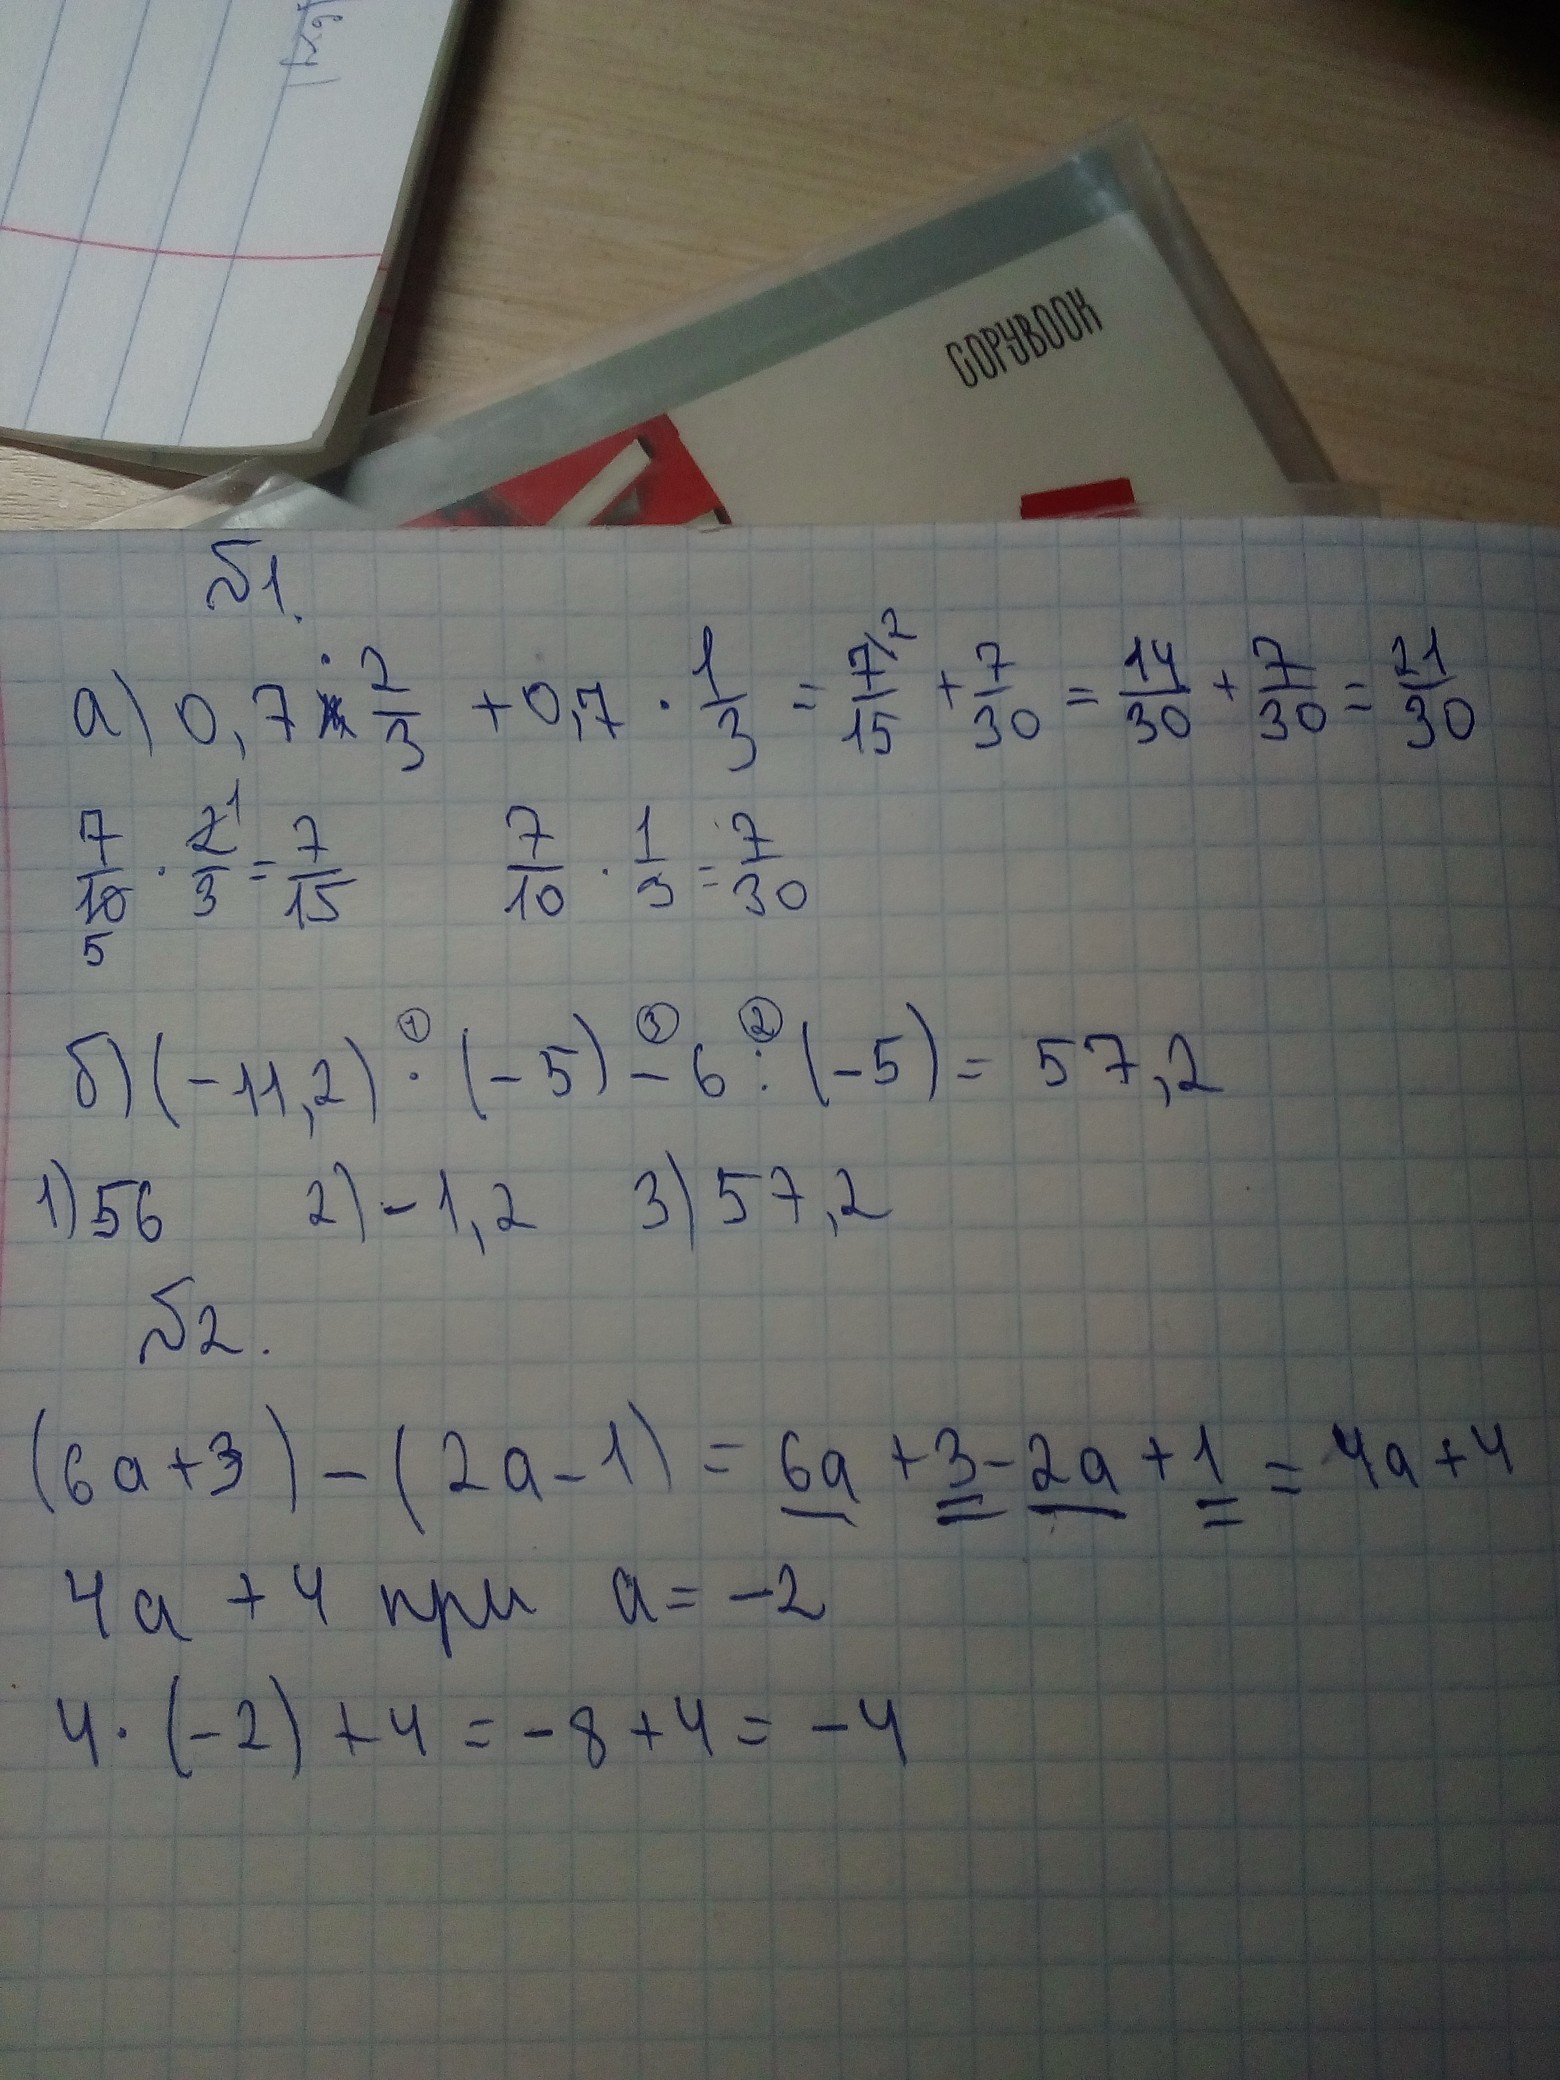 COPYBOOK
№1.
а) 0,7 · 2/3 + 0,7 · 1/3 = 7/15 \2 + 7/30 = 14/30 + 7/30 = 21/30
7/10 5 · 2/3 1 = 7/15 7/10 · 1/3 = 7/30
б) (-11,2) ① · (-5) ③ - 6 ② : (-5) = 57,2
1) 56 2) -1,2 3) 57,2
№2.
(6a+3) - (2a-1) = 6a + 3 - 2a + 1 = 4a + 4
4a + 4 при a = -2
4 · (-2) + 4 = -8 + 4 = -4